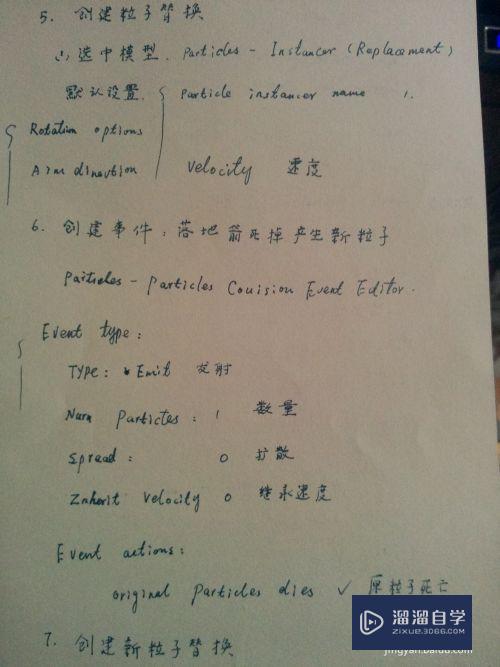 5. 创建粒子替换
(1) 选中模型. Particles - Instancer (Replacement)
默认设置. Particle instancer name 1.
Rotation options
Aim direction Velocity 速度
6. 创建事件: 落地箭死掉产生新粒子
Particles - Particles Couision Event Editor.
Event type:
TYPE: Emit 发射
Num Particles: 1 数量
Spread: 0 扩散
Inherit Velocity 0 继承速度
Event actions:
original Particles dies ✓ 原粒子死亡
7. 创建新粒子替换
溜溜自学
ZIXUE.3D66.COM
jingyan.baidu.com